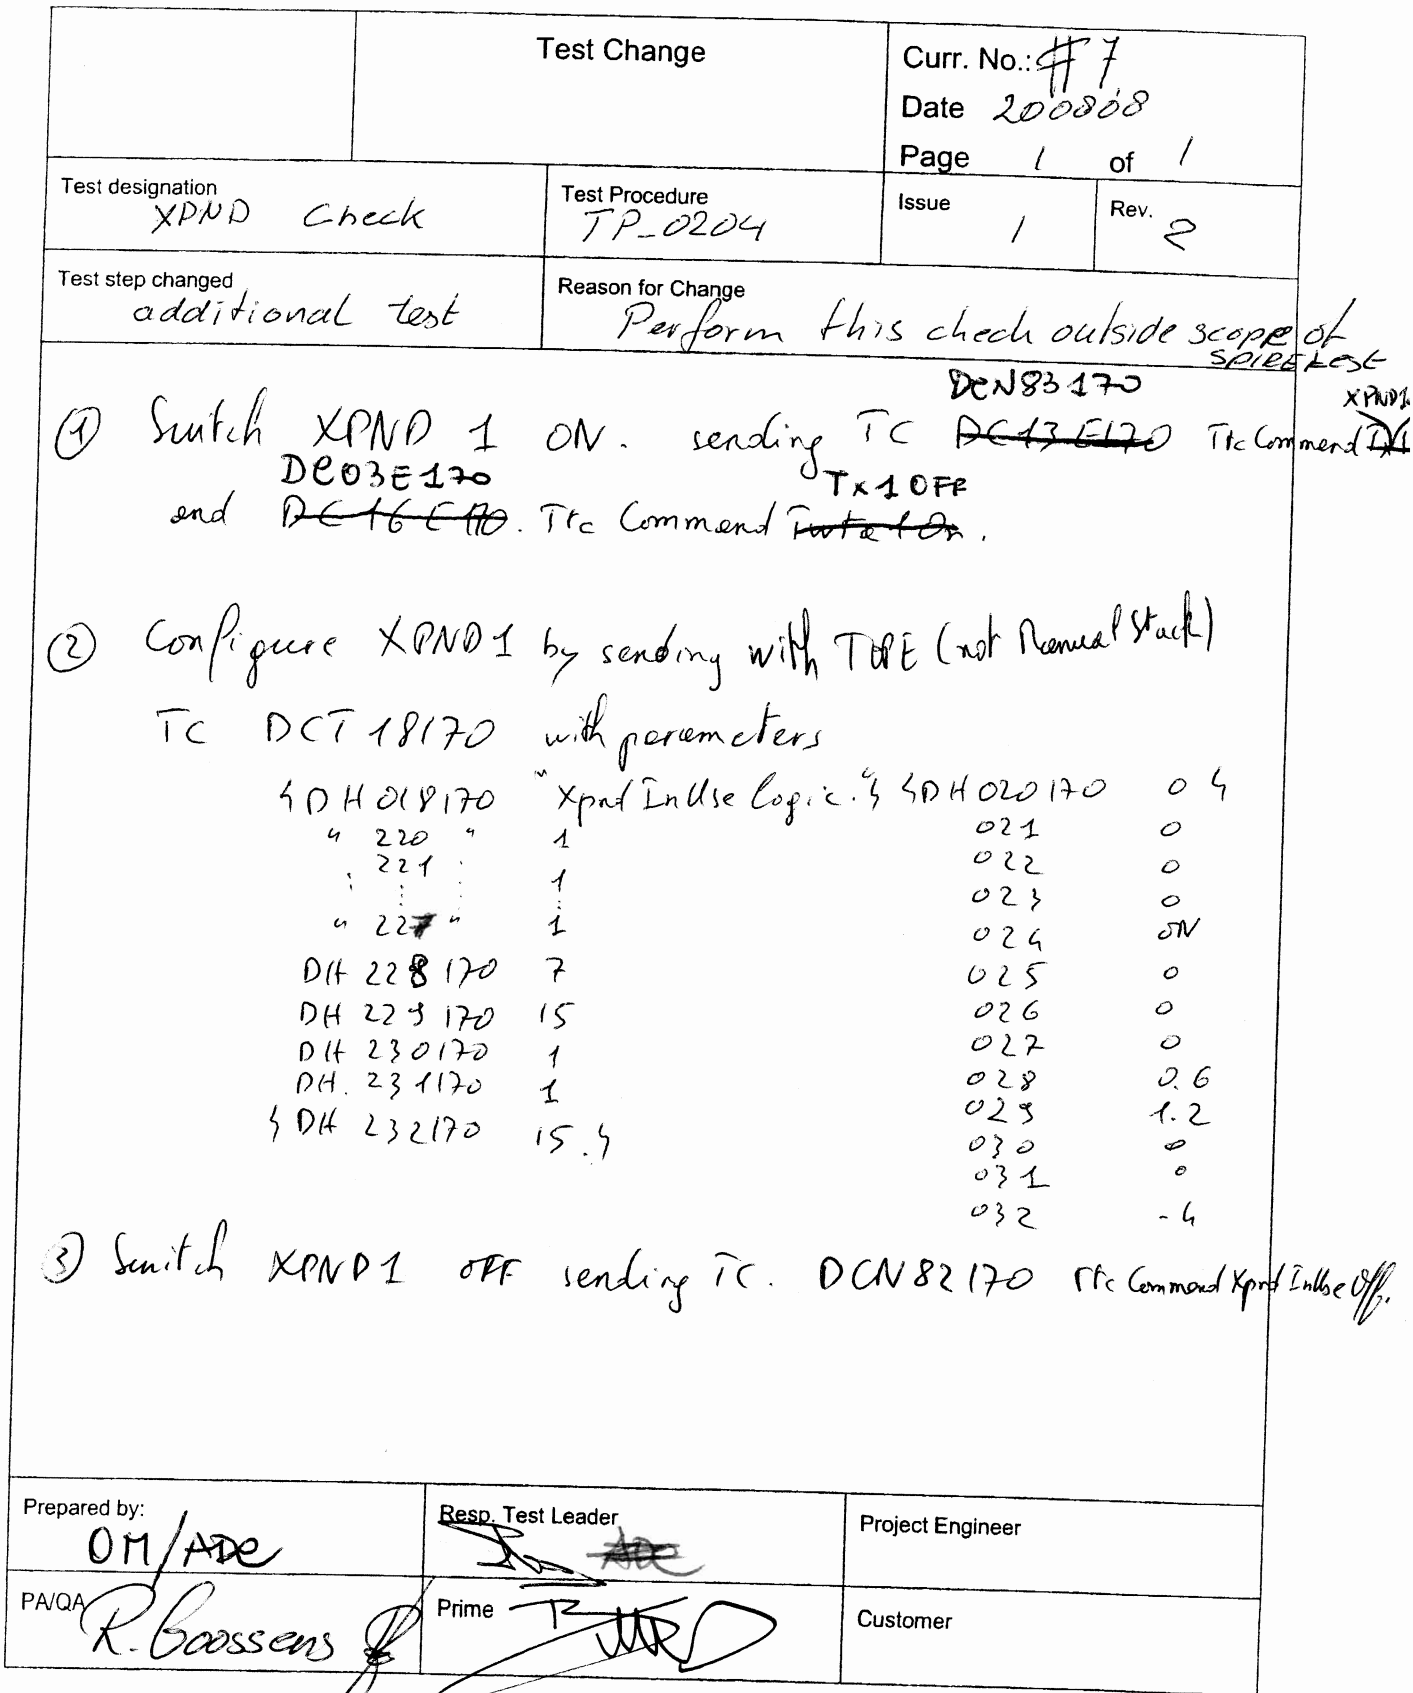 Test Change
Curr. No.: #7
Date 200808
Page 1 of 1
Test designation
XPND Check
Test Procedure
TP_0204
Issue
1
Rev.
2
Test step changed
additional test
Reason for Change
Perform this check outside scope of
SPIRE test
DCN83170
XPND1
① Switch XPND 1 ON. sending TC DC13E170 Ttc Command
DC03E170 Tx1 OFF
and DC16E170. Ttc Command .
② Configure XPND1 by sending with TOPE (not Manual Stack)
TC DCT18170 with parameters
{DH018170 "Xpnd InUse Logic."} {DH020170 0 }
" 220 " 1 021 0
221 1 022 0
: : : : 023 0
" 227 " 1 024 ON
DH 228170 7 025 0
DH 229170 15 026 0
DH 230170 1 027 0
DH. 231170 1 028 0.6
{ DH 232170 15.} 029 1.2
030 0
031 0
032 -4
③ Switch XPND1 OFF sending TC. DCN82170 Ttc Command Xpnd InUse Off.
Prepared by:
OM/ADC
Resp. Test Leader
ADC
Project Engineer
PA/QA
R. Goossens
Prime
Customer